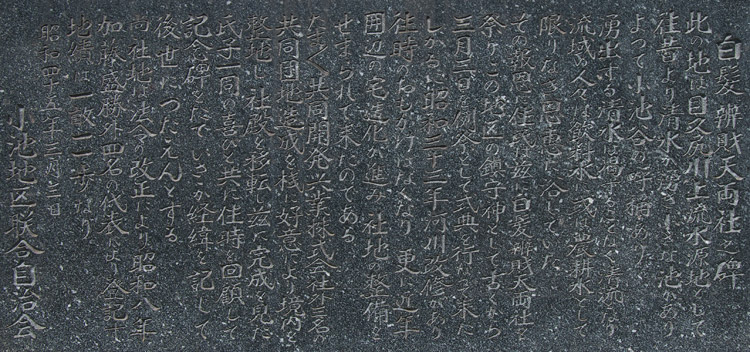 白髪辨財天両社之碑
此の地は目久尻川上流水源地にして
往昔より清水が湧き小さな池があり
よつて小池谷の呼稱あり
湧出する清水は渇することなく清流となり
流域の人々は飲料水に又は農耕水として
限りなき恩恵に浴していた
その報恩に住民は茲に白髪辨財天両社を
祭りこの地区の鎮守神として古くから
三月三日を例祭として式典を行なつて来た
しかるに昭和二十二年河川改修があり
往時のおもかげはなくなり更に近年
囲辺の宅造化が進み社地の整備を
せまられて来たのである
たまたま共同開発興業株式会社外三名
共同団地造成を機に好意により境内を
整地し社殿を移転し茲に完成を見た
氏子一同の喜びと共に往時を回顧して
記念碑をたていさゝか経緯を記して
後世につたえんとする
尚社地は法令の改正により昭和八年
加藤盛蔵外四名の代表により登記す
地績は一畝二十歩なり
昭和四十五年三月三日
小池地区联合自治会